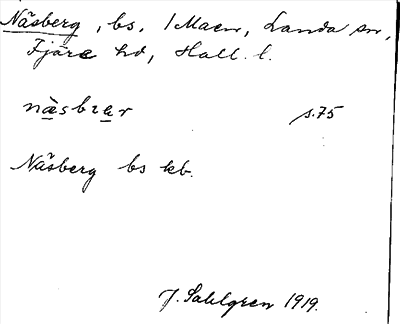 Näsberg, bs, 1 Maen, Landa sn,
Fjäre hd, Hall. l.
näsbrær s.75
Näsberg bs kb.
J. Sahlgren 1919.